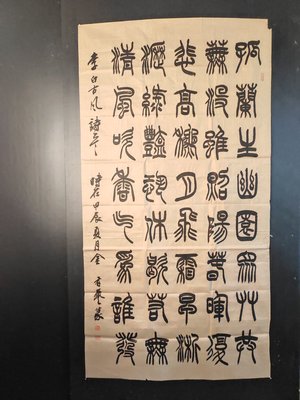 孤蘭生幽園眾艸共
蕪沒雖照陽春暉復
悲高秋月飛霜早淅
瀝綠豔恐休歇若無
清風吹香气為誰發
李白古風詩 時在甲辰夏月